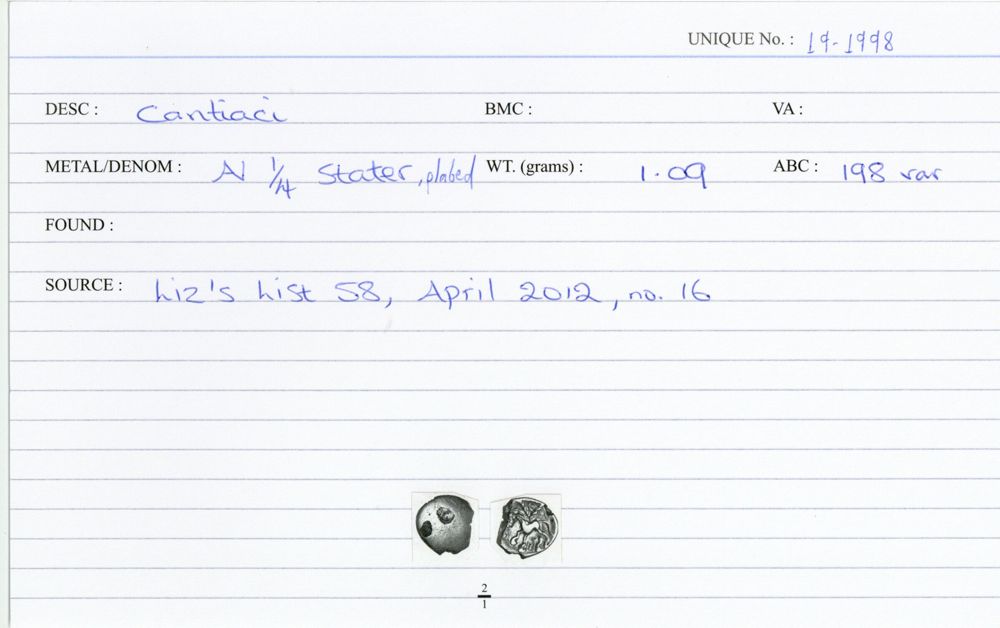 UNIQUE No. : 19-1998
DESC : Cantiaci BMC : VA :
METAL/DENOM : N 1/4 Stater, plated WT. (grams) : 1.09 ABC : 198 var
FOUND :
SOURCE : Liz's List 58, April 2012, no. 16
2
1